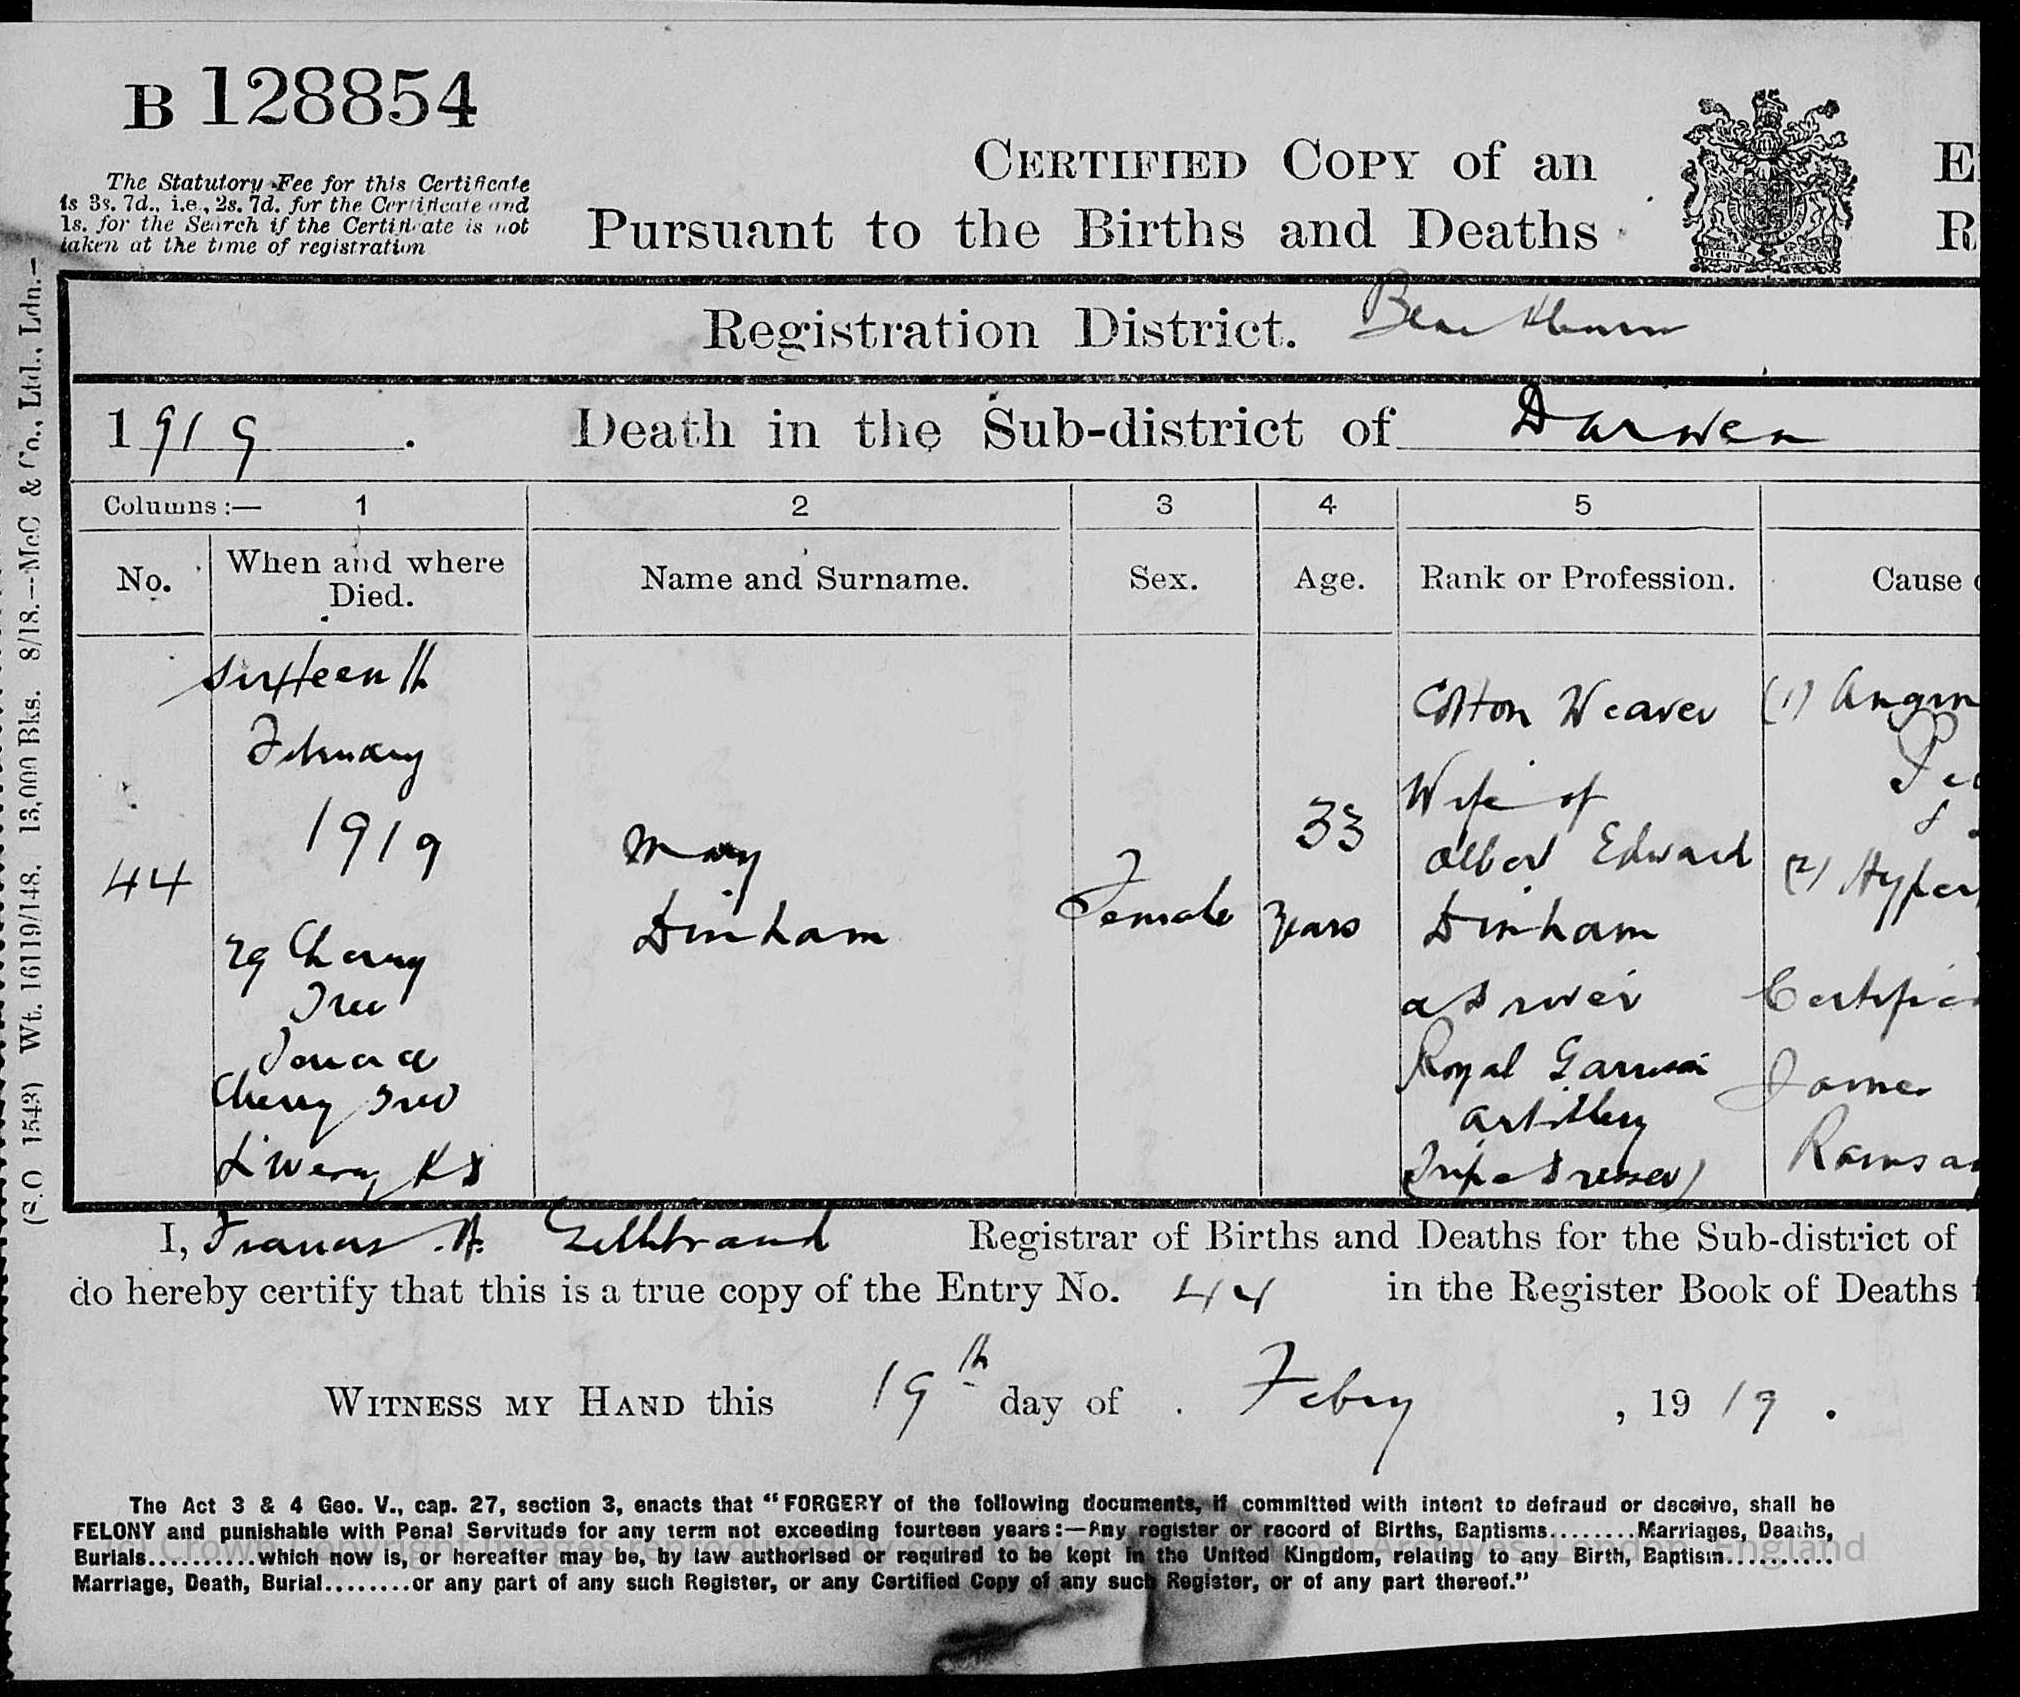 B 128854
The Statutory Fee for this Certificate
is 3s. 7d., i.e., 2s. 7d. for the Certificate and
1s. for the Search if the Certificate is not
taken at the time of registration
CERTIFIED COPY of an E
Pursuant to the Births and Deaths R
(S.O 1543) Wt. 16119/148. 13,000 Bks. 8/18.—McC & Co., Ltd., Ldn.—
Registration District. Blackburn
1919. Death in the Sub-district of Darwen
Columns:— 1 2 3 4 5
No. When and where Died. Name and Surname. Sex. Age. Rank or Profession. Cause
44
sixteenth
February
1919
29 Cherry
Tree
Terrace
Cherry Tree
Livesey
May
Dinham
Female
33
years
Cotton Weaver
Wife of
Albert Edward
Dinham
a Driver
Royal Garrison
Artillery
(Tripe Dresser)
(1) Angin
(2) Hyper
Certifie
James
Ramsa
I, Francis A. Gillibrand Registrar of Births and Deaths for the Sub-district of
do hereby certify that this is a true copy of the Entry No. 44 in the Register Book of Deaths
WITNESS MY HAND this 19th day of Febry, 1919.
The Act 3 & 4 Geo. V., cap. 27, section 3, enacts that "FORGERY of the following documents, if committed with intent to defraud or deceive, shall be
FELONY and punishable with Penal Servitude for any term not exceeding fourteen years:—Any register or record of Births, Baptisms........Marriages, Deaths,
Burials..........which now is, or hereafter may be, by law authorised or required to be kept in the United Kingdom, relating to any Birth, Baptism..........
Marriage, Death, Burial........or any part of any such Register, or any Certified Copy of any such Register, or of any part thereof."
(c) Crown Copyright Images reproduced by courtesy of The National Archives, London, England